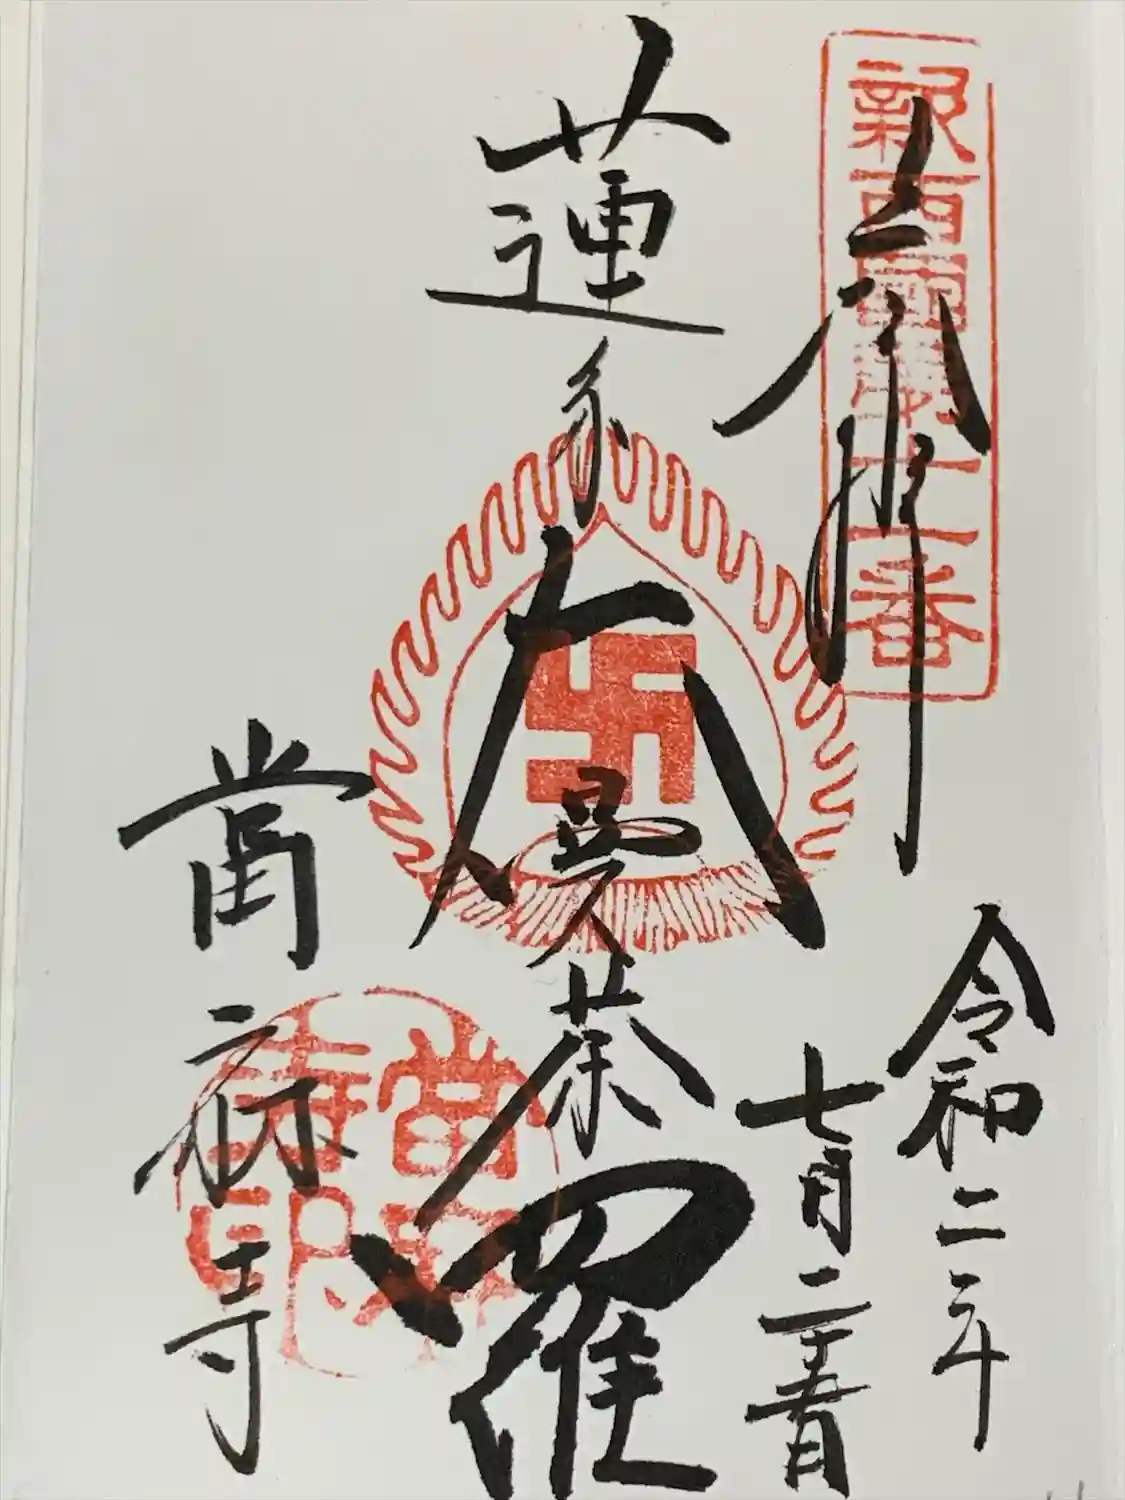 奉拝
新西国第十一番
令和二年
七月二十五日
蓮糸大曼荼羅
當麻寺
當麻寺印